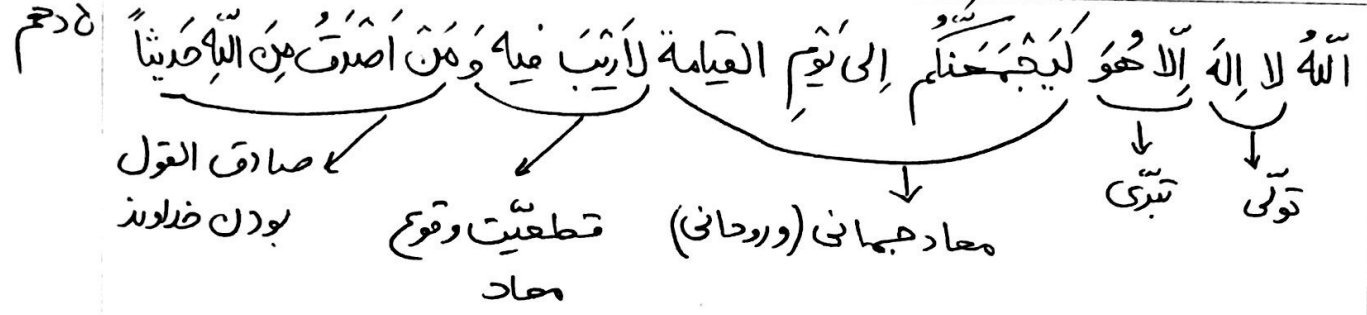 اَللّهُ لا اِلهَ اِلّا هُوَ لَیَجْمَعَنَّکُم اِلی یَوْمِ القیامة لارَیْبَ فیه وَ مَنْ اَصْدَقُ مِنَ اللّهِ حَدیثاً
تولّی
تبرّی
معاد جسمانی (و روحانی)
قطعیّت وقوع
معاد
صادق القول
بودن خداوند